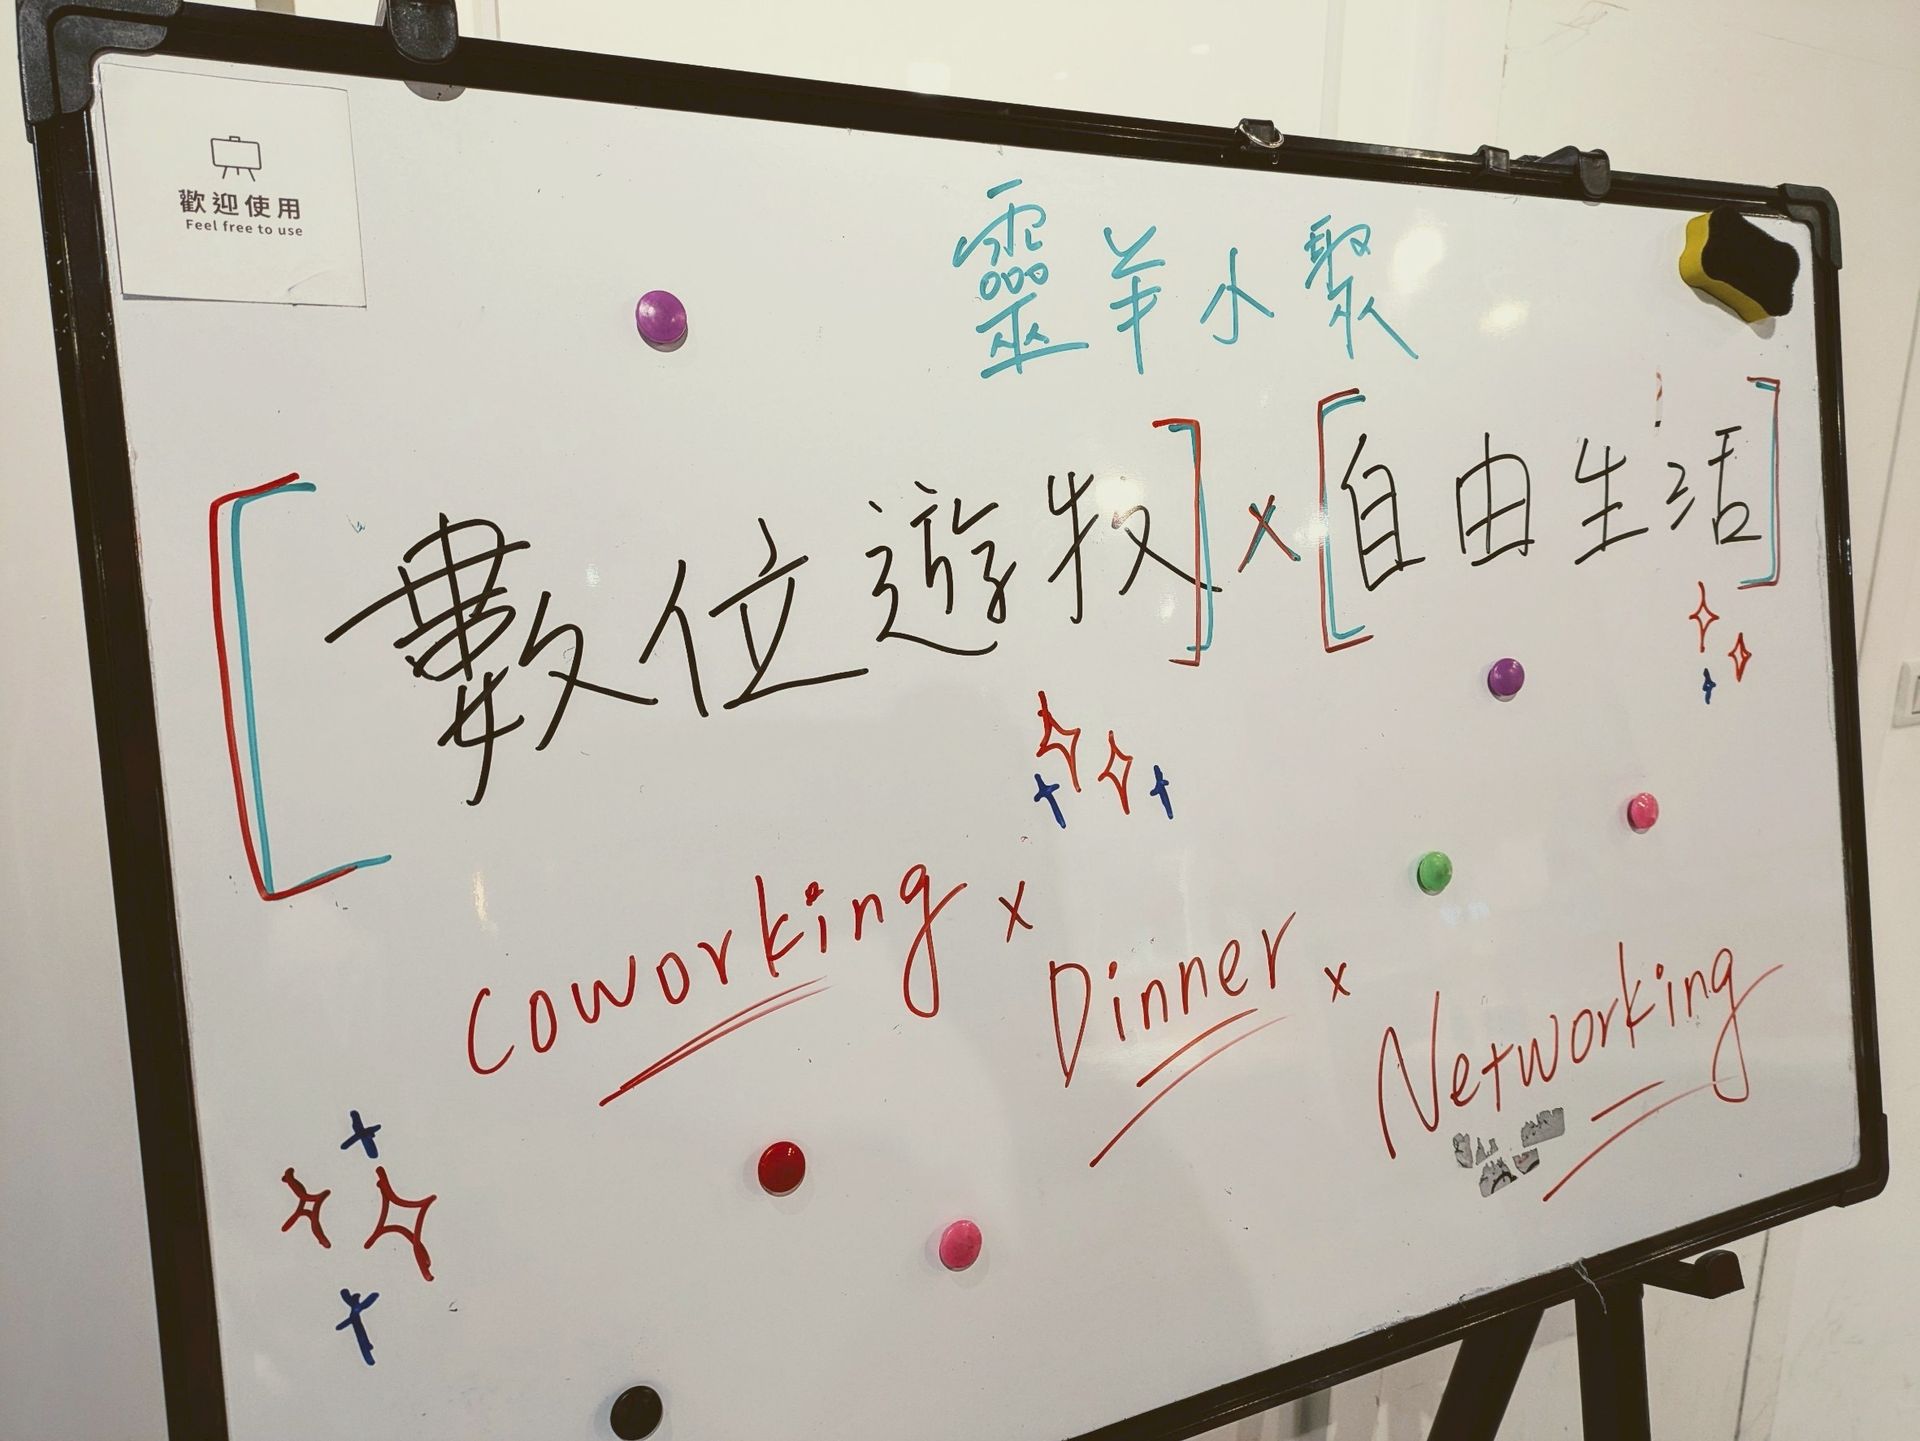 歡迎使用
Feel free to use
靈羊小聚
[數位遊牧] x [自由生活]
Coworking x Dinner x Networking